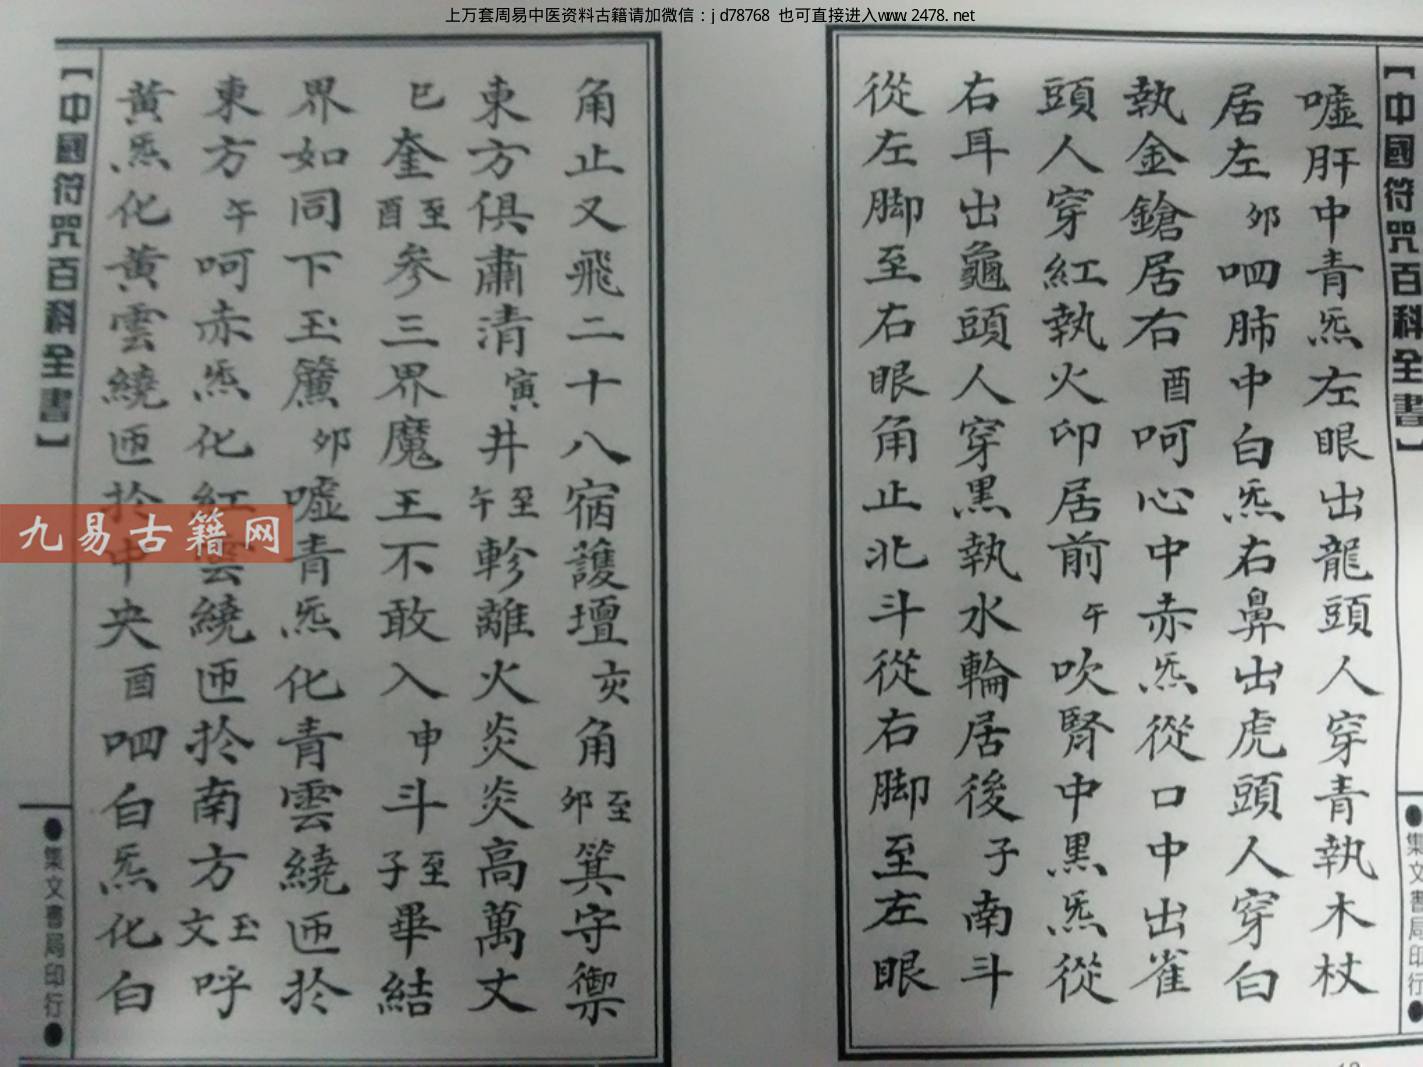 上万套周易中医资料古籍请加微信：jd78768 也可直接进入www.2478.net
【中國符咒百科全書】
噓肝中青炁左眼出龍頭人穿青執木杖
居左卯呬肺中白炁右鼻出虎頭人穿白
執金鎗居右酉呵心中赤炁從口中出雀
頭人穿紅執火印居前午吹腎中黑炁從
右耳出龜頭人穿黑執水輪居後子南斗
從左脚至右眼角止北斗從右脚至左眼
●集文書局印行●
角止又飛二十八宿護壇亥角至卯箕守禦
東方俱肅清寅井至午軫離火炎炎高萬丈
巳奎至酉參三界魔王不敢入申斗至子畢結
界如同下玉簾卯噓青炁化青雲繞迊於
東方午呵赤炁化紅雲繞迊於南方玉文呼
黃炁化黃雲繞迊於中央酉呬白炁化白
【中國符咒百科全書】
●集文書局印行●
九易古籍网